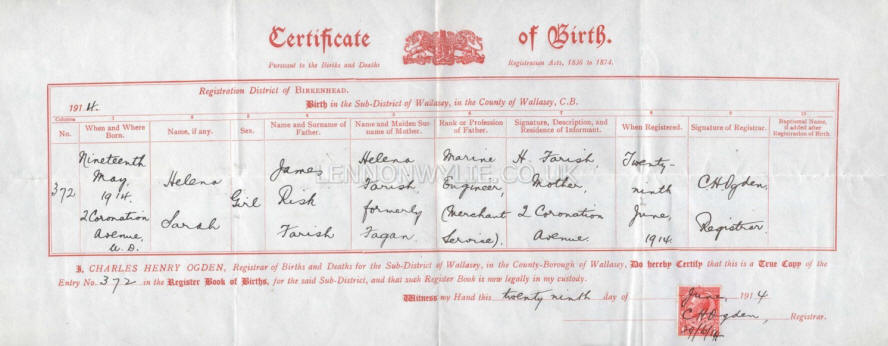 Certificate of Birth.
Pursuant to the Births and Deaths Registration Acts, 1836 to 1874.
Registration District of BIRKENHEAD.
1914. Birth in the Sub-District of Wallasey, in the County of Wallasey, C.B.
Columns 1 2 3 4 5 6 7 8 9 10
No.
When and Where Born.
Name, if any.
Sex.
Name and Surname of Father.
Name and Maiden Surname of Mother.
Rank or Profession of Father.
Signature, Description, and Residence of Informant.
When Registered.
Signature of Registrar.
Baptismal Name, if added after Registration of Birth.
372
Nineteenth
May,
1914.
2 Coronation
Avenue,
U. D.
Helena
Sarah
Girl
James
Risk
Farish
Helena
Farish
formerly
Fagan.
Marine
Engineer,
(Merchant
Service).
H. Farish,
Mother,
2 Coronation
Avenue.
Twenty-
ninth
June,
1914.
CHOgden,
Registrar
LENNONWYLIE.CO.UK
I, CHARLES HENRY OGDEN, Registrar of Births and Deaths for the Sub-District of Wallasey, in the County-Borough of Wallasey, Do hereby Certify that this is a True Copy of the
Entry No. 372 in the Register Book of Births, for the said Sub-District, and that such Register Book is now legally in my custody.
Witness my Hand this twenty ninth day of June, 1914
CHOgden, Registrar.
29/6/14